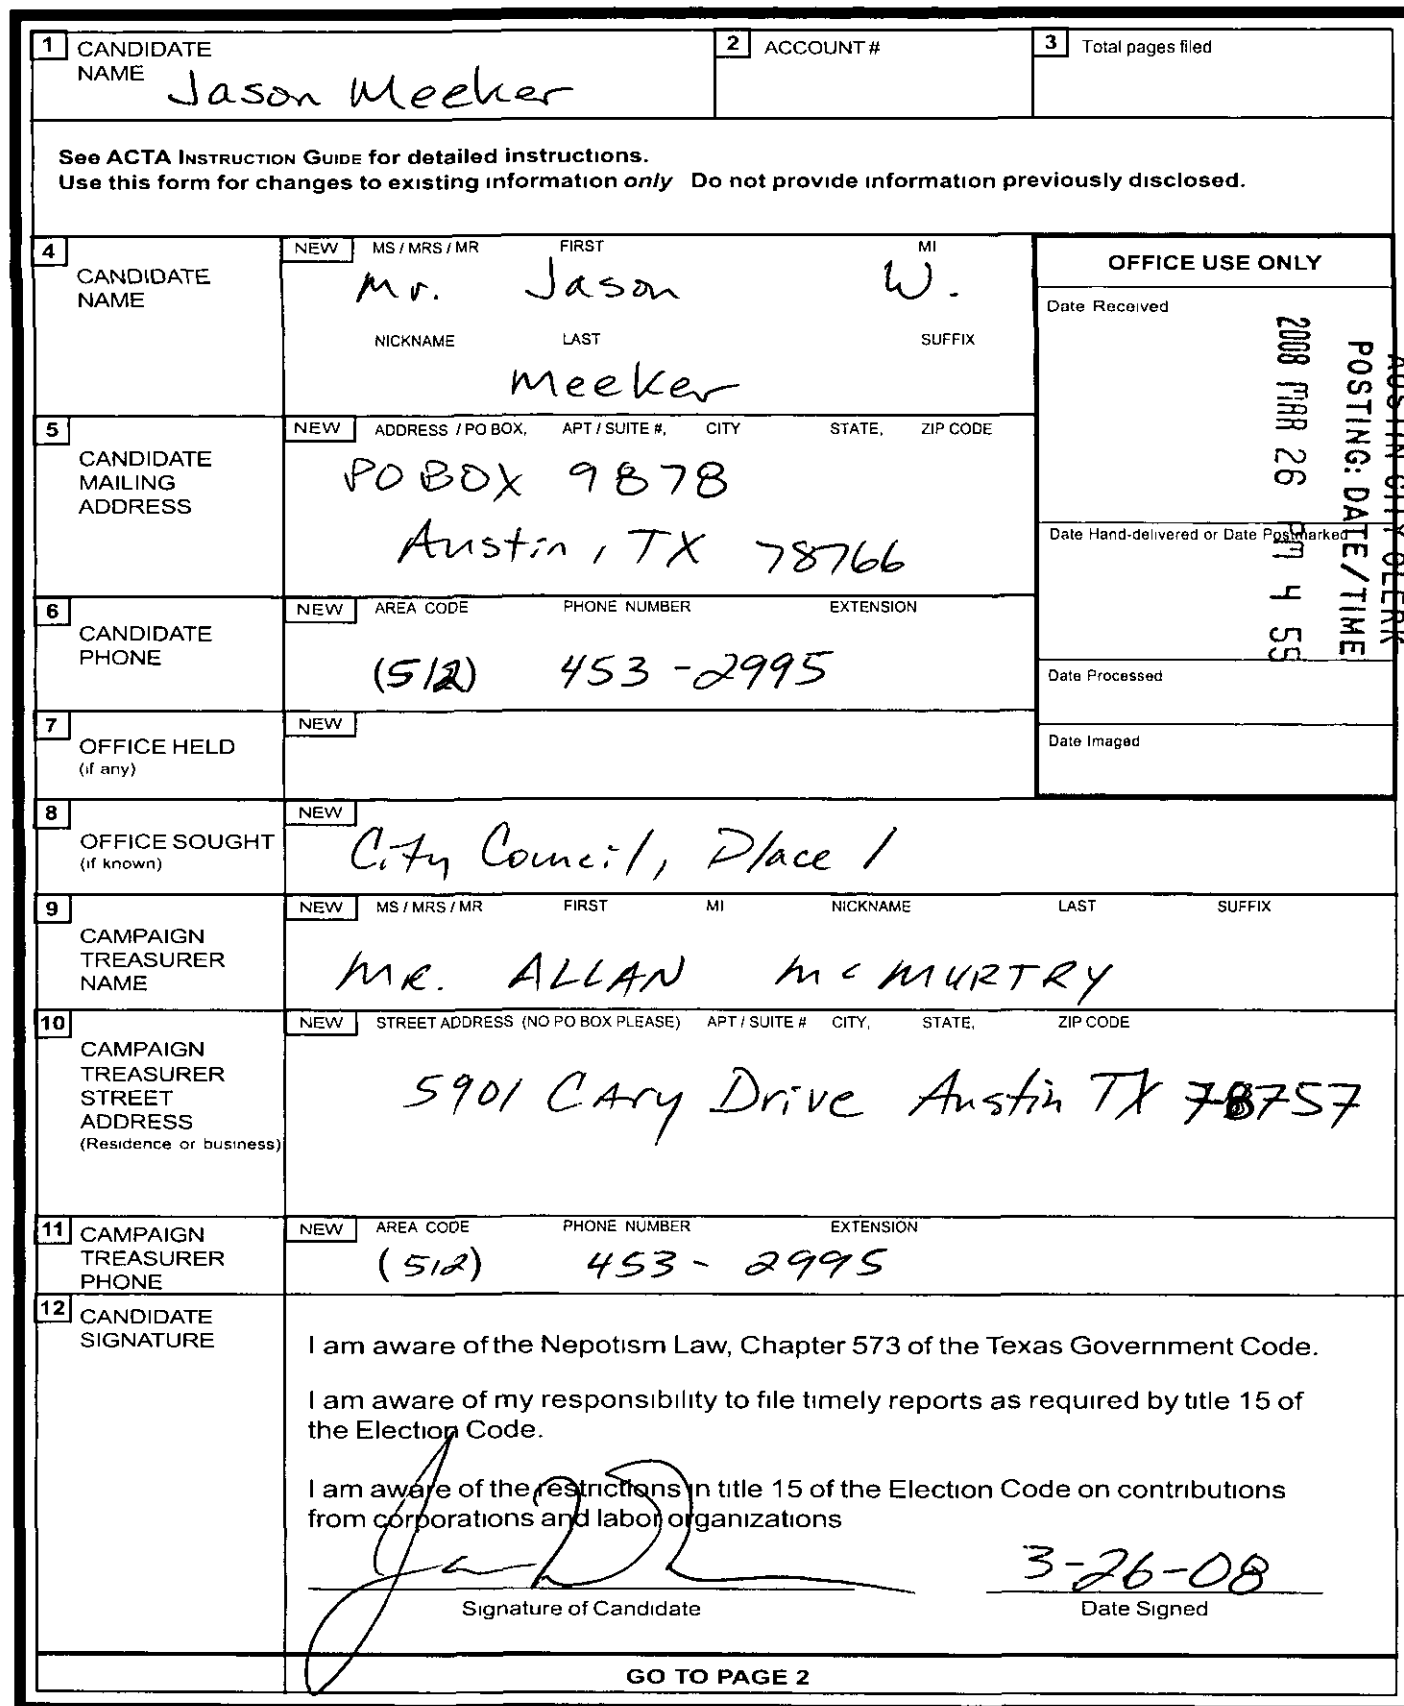 1 CANDIDATE NAME Jason Meeker
2 ACCOUNT #
3 Total pages filed
See ACTA INSTRUCTION GUIDE for detailed instructions.
Use this form for changes to existing information only Do not provide information previously disclosed.
4 CANDIDATE NAME
NEW MS / MRS / MR FIRST MI
Mr. Jason W.
NICKNAME LAST SUFFIX
Meeker
OFFICE USE ONLY
Date Received
AUSTIN CITY CLERK
POSTING: DATE/TIME
2008 MAR 26 PM 4 55
Date Hand-delivered or Date Postmarked
Date Processed
Date Imaged
5 CANDIDATE MAILING ADDRESS
NEW ADDRESS / PO BOX, APT / SUITE #, CITY STATE, ZIP CODE
PO BOX 9878
Austin, TX 78766
6 CANDIDATE PHONE
NEW AREA CODE PHONE NUMBER EXTENSION
(512) 453-2995
7 OFFICE HELD
(if any)
NEW
8 OFFICE SOUGHT
(if known)
NEW
City Council, Place 1
9 CAMPAIGN TREASURER NAME
NEW MS / MRS / MR FIRST MI NICKNAME LAST SUFFIX
MR. ALLAN McMURTRY
10 CAMPAIGN TREASURER STREET ADDRESS
(Residence or business)
NEW STREET ADDRESS (NO PO BOX PLEASE) APT / SUITE # CITY, STATE, ZIP CODE
5901 CAry Drive Austin TX 78757
11 CAMPAIGN TREASURER PHONE
NEW AREA CODE PHONE NUMBER EXTENSION
(512) 453-2995
12 CANDIDATE SIGNATURE
I am aware of the Nepotism Law, Chapter 573 of the Texas Government Code.
I am aware of my responsibility to file timely reports as required by title 15 of
the Election Code.
I am aware of the restrictions in title 15 of the Election Code on contributions
from corporations and labor organizations
3-26-08
Signature of Candidate Date Signed
GO TO PAGE 2